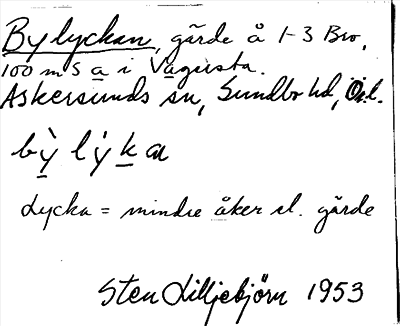 Bylyckan, gärde å 1-3 Bro,
100 m S a i Vagursta.
Askersunds sn, Sundbo hd, Ö.l.
bỳ̱ lýḵa
Lycka = mindre åker el. gärde
Sten Lilljebjörn 1953